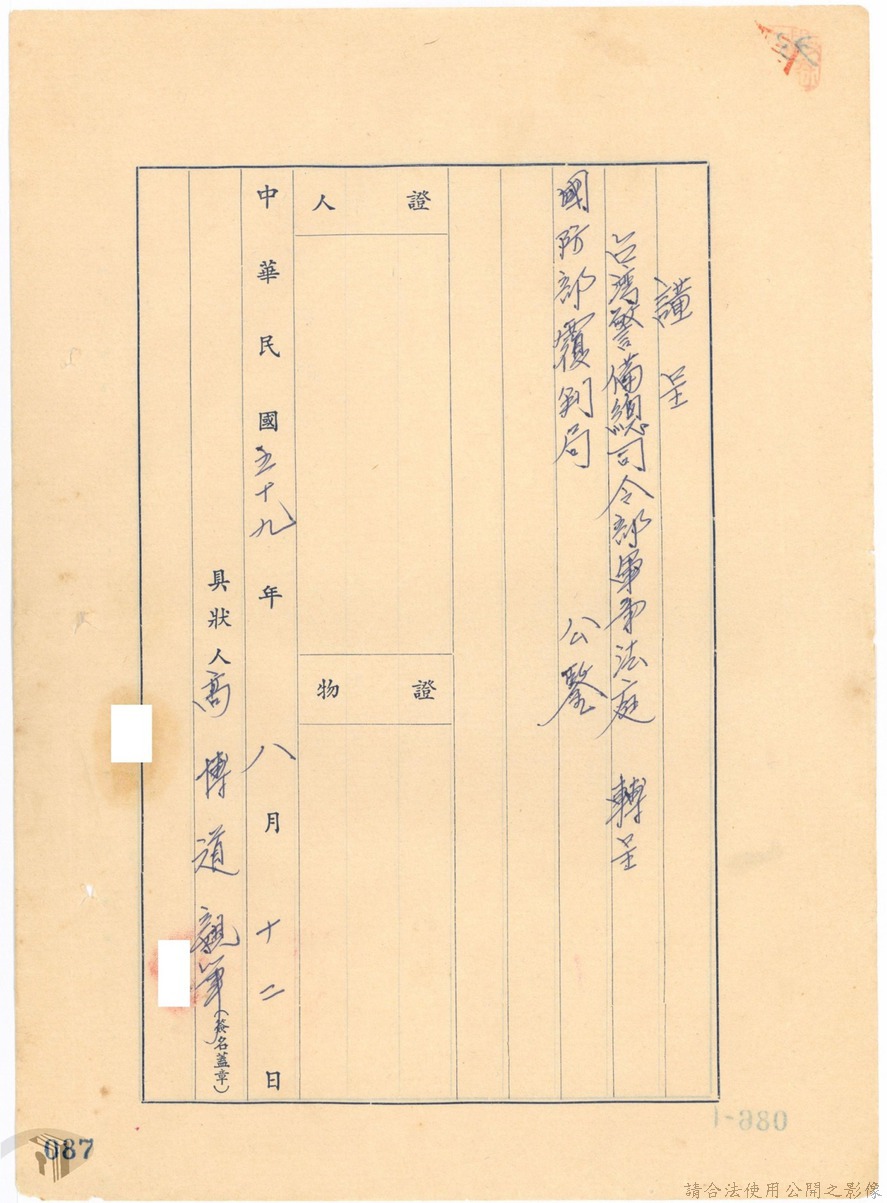 謹呈
台灣警備總司令部軍事法庭 轉呈
國防部覆判局 公鑒
證人
證物
中華民國五十九年八月十二日
具狀人高博道親筆(簽名蓋章)
087
1-980
請合法使用公開之影像